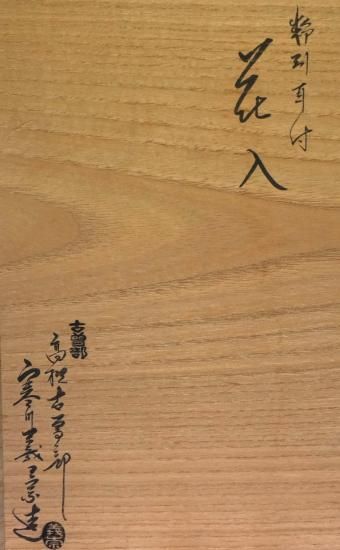 粉引耳付
花入
古曽部
高槻古曽部
寒川義崇造
義崇